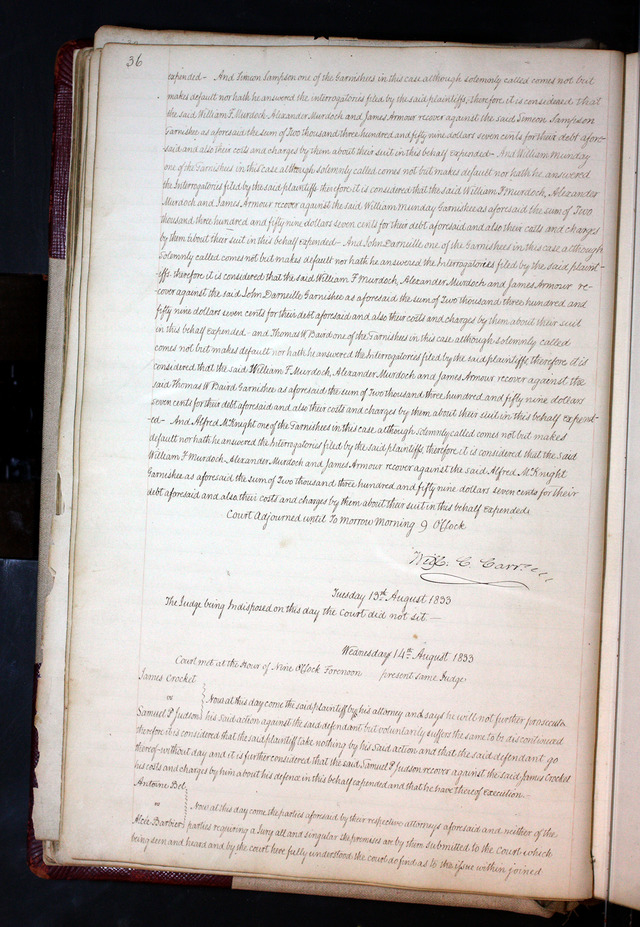 36
expended- And Simeon Sampson one of the Garnishees in this case although solemnly called comes not but
makes default nor hath he answered the interrogatories filed by the said plaintiffs, therefore it is considered that
the said William F. Murdock Alexander Murdoch and James Armour recover against the said Simeon Sampson
Garnishee as aforesaid the sum of Two thousand three hundred and fifty nine dollars seven cents for their debt afore-
said and also their costs and charges by them about their suit in this behalf expended- And William Munday
one of the Garnishees in this case although solemnly called comes not but makes default nor hath he answered
the Interrogatories filed by the said plaintiffs therefore it is considered that the said William F. Murdoch, Alexander
Murdoch and James Armour recover against the said William Munday Garnishee as aforesaid the sum of Two
thousand three hundred and fifty nine dollars seven cents for their debt aforesaid and also their costs and charges
by them about their suit in this behalf expended- And John Darneille one of the Garnishees in this case although
Solemnly called comes not but makes default nor hath he answered the Interrogatories filed by the said plaint-
iffs therefore it is considered that the said William F Murdoch, Alexander Murdoch and James Armour re-
cover against the said John Darneille Garnishee as aforesaid the sum of Two thousand three hundred and
fifty nine dollars seven cents for their debt aforesaid and also their costs and charges by them about their suit
in this behalf expended- and Thomas W Baird one of the Garnishees in this case although solemnly called
comes not but makes default nor hath he answered the Interrogatories filed by the said plaintiffs, therefore it is
considered that the said William F. Murdoch, Alexander Murdoch and James Armour recover against the
said Thomas W. Baird Garnishee as aforesaid the sum of Two thousand three hundred and fifty nine dollars
seven cents for their debt aforesaid and also their costs and charges by them about their suit in this behalf expend-
ed- And Alfred McKnight one of the Garnishees in this case although Solemnly called comes not but makes
default nor hath he answered the Interrogatories filed by the said plaintiffs, therefore it is considered that the Said
William F Murdoch, Alexander Murdoch and James Armour recover against the said Alfred McKnight
Garnishee as aforesaid the sum of Two thousand three hundred and fifty nine dollars seven cents for their
debt aforesaid and also their costs and charges by them about their suit in this behalf expended.
Court Adjourned until To morrow Morning 9 OClock
C. Carr
Tuesday 13th August 1833
The Judge being Indisposed on this day the Court did not sit.-
Wednesday 14th August 1833
Court met at the Hour of Nine OClock Forenoon present same Judge
James Crocket
vs
Now at this day come the said plaintiff by his attorney and says he will not further prosecute
Samuel P. Judson his said action against the said defendant but voluntarily suffers the same to be discontinued
therefore it is considered that the said plaintiff take nothing by his said action and that the said defendant go
thereof without day and it is further considered that the said Samuel P Judson recover against the said James Crocket
his costs and charges by him about his defence in this behalf expended and that he have thereof execution.-
Antoine Bel
vs
Now at this day come the parties aforesaid by their respective attorneys aforesaid and neither of the
Alcie Barbier parties requiring a Jury all and singular the premises are by them submitted to the Court which
being seen and heard and by the court here fully understood the court do find as to the issue within joined